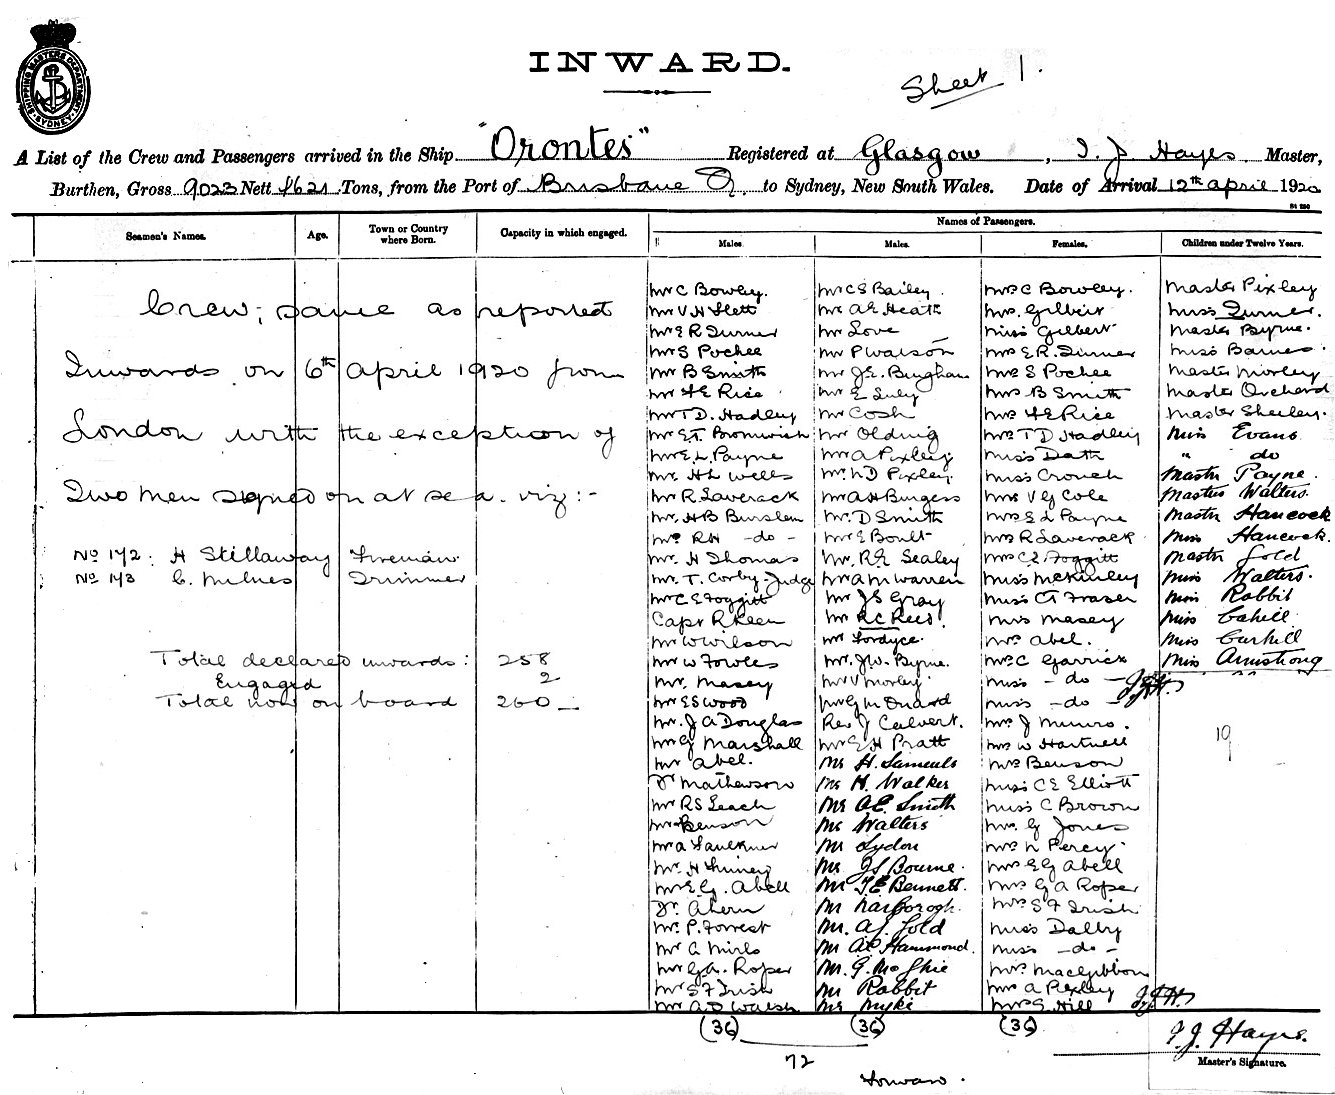 SHIPPING MASTERS DEPARTMENT SYDNEY
INWARD.
Sheet 1.
A List of the Crew and Passengers arrived in the Ship "Orontes" Registered at Glasgow, I. J Hayes Master,
Burthen, Gross 9023 Nett 4621 Tons, from the Port of Brisbane Q to Sydney, New South Wales. Date of Arrival 12th April 1920
Seamen's Names. Age. Town or Country where Born. Capacity in which engaged. Names of Passengers.
Males. Males. Females. Children under Twelve Years.
Crew; same as reported
Inwards on 6th April 1920 from
London with the exception of
Two men signed on at sea. viz:-
No 172: H Stillaway Fireman
No 173 C. Milnes Trimmer
Total declared inwards: 258
Engaged 2
Total now on board 260
Mr C Bowley.
Mr V H Flett
Mr E R Turner
Mr S Pochee
Mr B Smith
Mr H E Rice
Mr T D. Hadley
Mr E T. Bromwich
Mr E. L. Payne
Mr. H L Wells
Mr R Laverack
Mr. H B Burslem
Mr. RH -do-
Mr. H Thomas
Mr. T. Corby-Judge
Mr C E Foggitt
Capt R Keen
Mr W Wilson
Mr W Fowles
Mr. Masey
Mr E S Wood
Mr. J A Douglas
Mr G Marshall
Mr Abel.
Dr Mathewson
Mr RS Leach
Mr Benson
Mr A Faulkner
Mr. H
Mr E. G. Abell
Dr. Ahern
Mr. P. Forrest
Mr A Mills
Mr G. A. Roper
Mr S F Irish
Mr A. D Walsh
Mr C S Bailey.
Mr A E Heath
Mr Love
Mr P Watson
Mr J. E. Bingham
Mr E Suly
Mr Cosh
Mr Olding
Mr A Pixley
Mr. N D Pixley.
Mr A H Burgess
Mr. D Smith
Mr E Boult
Mr. R. E Sealey
Mr A M Warren
Mr J S Gray
Mr R C Rees.
Mr Fordyce.
Mr. J. W. Byrne.
Mr V Morley.
Mr G M Orchard
Rev J Calvert.
Mr E H Pratt
Mr H. Samuels
Mr H. Walker
Mr A E. Smith
Mr Walters
Mr Lydon
Mr J S Bourne.
Mr T E Bennett.
Mr Narborogh.
Mr. A J. Gold
Mr A P Hammond.
Mr. G. McGhie
Mr Rabbit
Mr Myke
Mrs C Bowley.
Mrs. Gilbert
Miss Gilbert
Mrs E R. Turner
Mrs S Pochee
Mrs B Smith
Mrs H E Rice
Mrs T D Hadley
Miss Dath
Miss Crouch
Mrs V G Cole
Mrs E L Payne
Mrs R Laverack
Mrs C E Foggitt
Miss McKinley
Miss A Fraser
Mrs Masey
Mrs Abel.
Mrs C Garrick
Miss -do-
Miss -do-
Mrs J Munro.
Mrs W Hartnell
Mrs Benson
Miss C E Elliott
Miss C Brown
Mrs. G Jones
Mrs N Percy.
Mrs E G Abell
Mrs G A Roper
Mrs S F Irish
Miss Dalby
Miss -do-
Mrs MacGibbon
Mrs A Pixley
Mrs S. Hill
Master Pixley
Miss Turner.
Master Byrne.
Miss Barnes.
Master Morley
Master Orchard
Master Sheeley.
Miss Evans
" do
Master Payne.
Master Walters.
Master Hancock
Miss Hancock.
Master Gold
Miss Walters.
Miss Rabbit
Miss Cahill
Miss Carhill
Miss Armstrong
19
(36) (36) (36)
72
Forward.
I. J. Hayes.
Master's Signature.